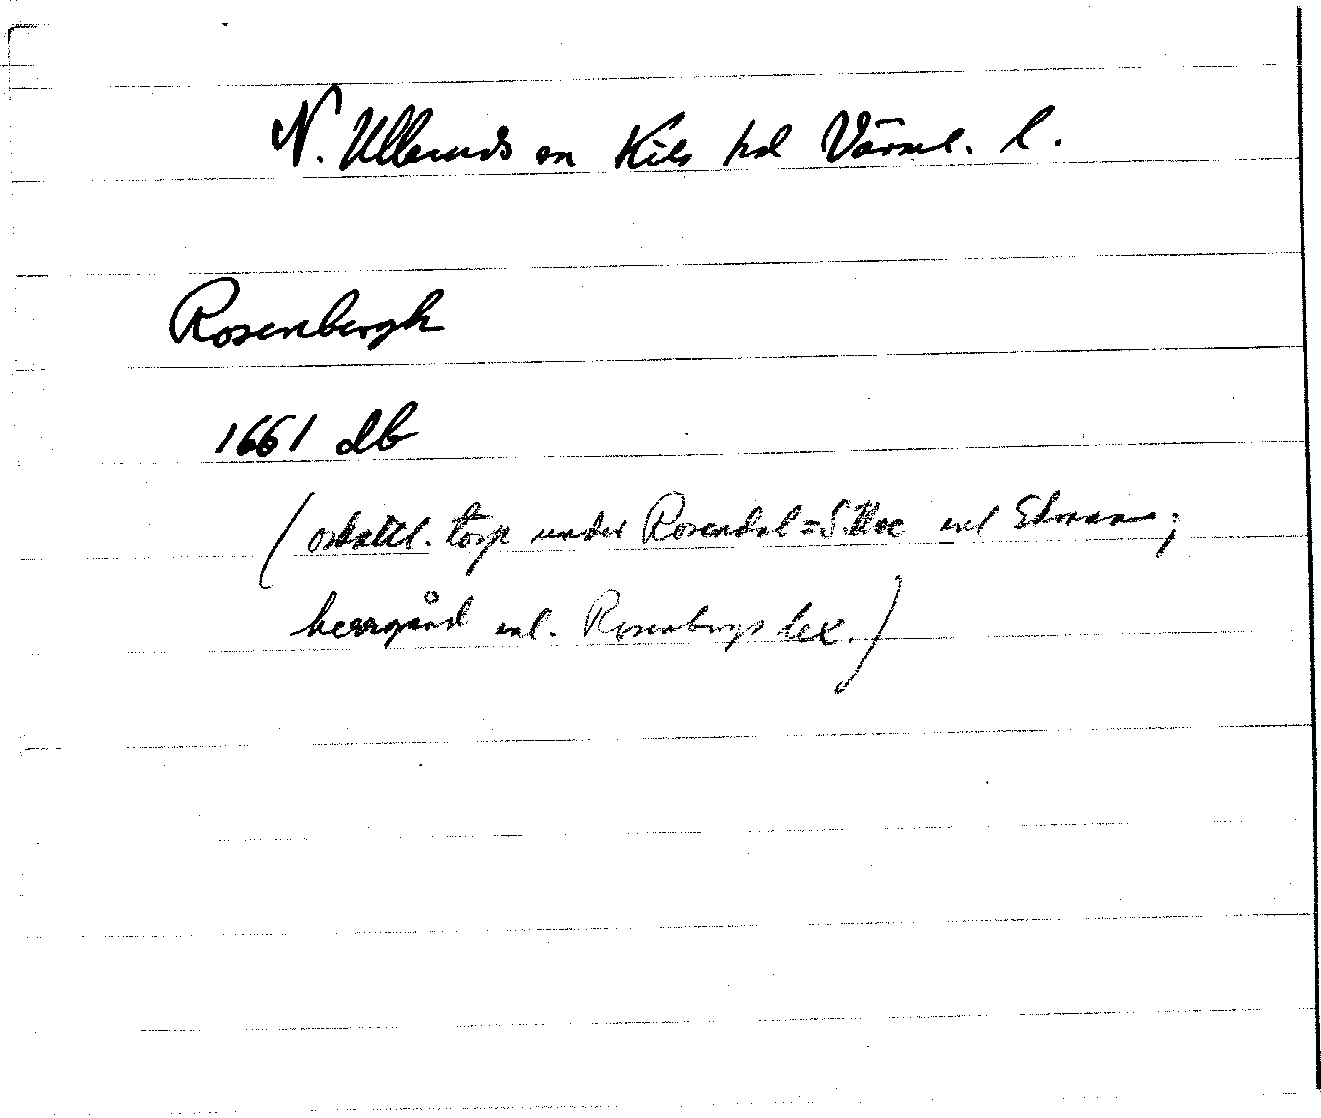 N. Ulleruds sn Kils hd Värml. l.
Rosenbergh
1661 db
(oskattl. torp under Rosendal = enl
herrgård enl. Rosenbergs lex.)